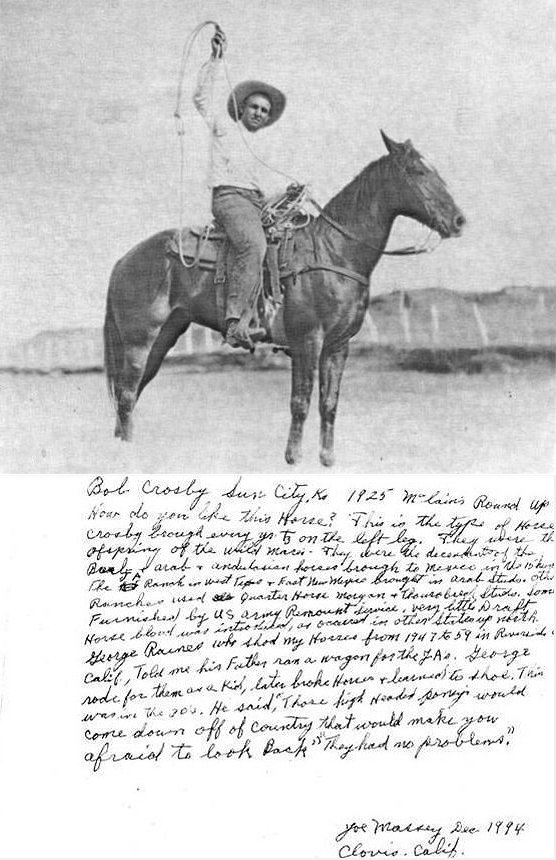 Bob Crosby Sun City, Ks 1925 McLains Round Up
How do you like this Horse? This is the type of Horse
Crosby brough every yr to on the left leg. They were the
ofspring of the wild mares - They were the decendent of the
& arab & andulusian horses brough to Mexico in the 15 hun
The Ranch in West Texas & East New Mexico brought in arab studs. Other
Ranches used Quarter Horse morgan & Thourobred studs. Some
Furnished by US army Remount Service, very little Draft
Horse blood was introduced, as occured in other States up north.
George Raines who shod my Horses from 1947 to 59 in Riverside
Calif, Told me his Father ran a wagon for the JAs. George
rode for them as a Kid, later broke Horses & learned to shoe. This
was in the 20's. He said, "Those high Headed pony's would
come down off of Country that would make you
afraid to look Back" "They had no problems."
Joe Massey Dec 1994
Clovis. Calif.